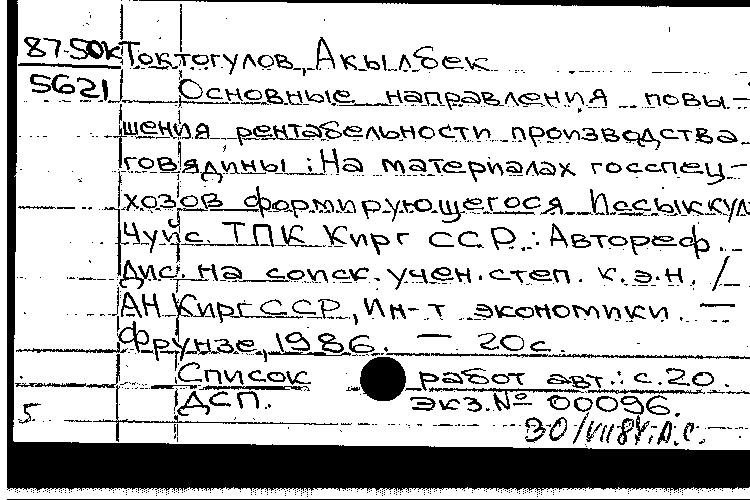 87-50к Токтогулов, Акылбек
5621 Основные направления повы-
шения рентабельности производства
говядины : На материалах госспец-
хозов формирующегося Иссыккул
Чуйс. ТПК Кирг ССР. : Автореф.
дис. на соиск. учен. степ. к.э.н. /
АН Кирг ССР, Ин-т экономики. —
Фрунзе, 1986. — 20 с.
Список работ авт.: с. 20.
ДСП. экз. № 00096.
5